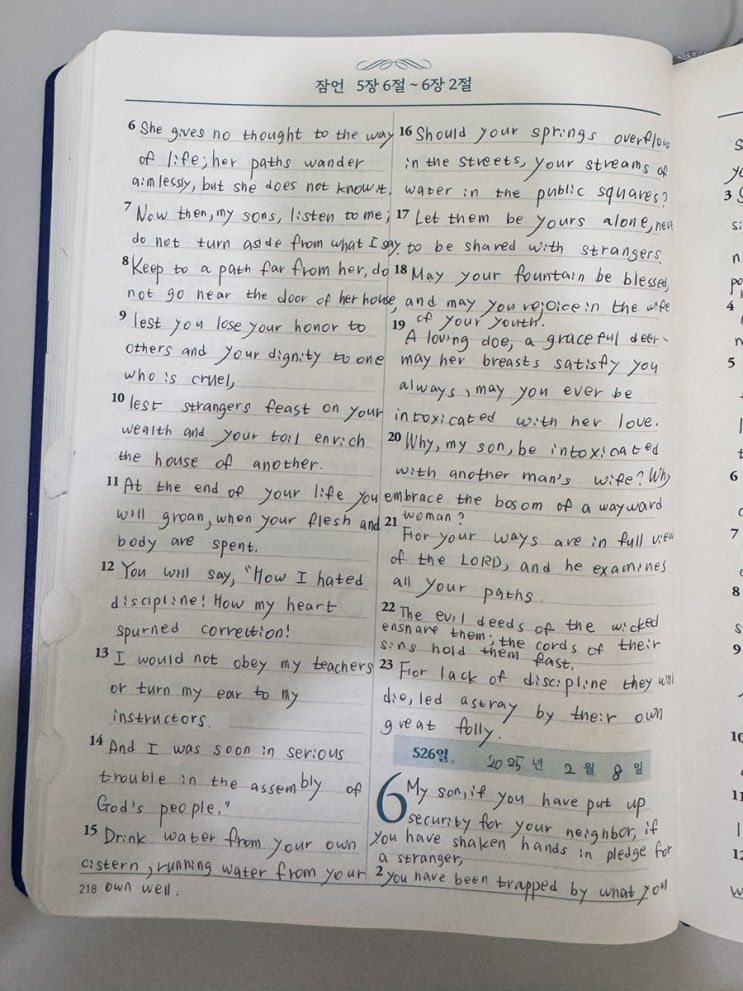 잠언 5장 6절 ~ 6장 2절
6 She gives no thought to the way
of life; her paths wander
aimlessly, but she does not know it.
7 Now then, my sons, listen to me;
do not turn aside from what I say.
8 Keep to a path far from her, do
not go near the door of her house,
9 lest you lose your honor to
others and your dignity to one
who is cruel,
10 lest strangers feast on your
wealth and your toil enrich
the house of another.
11 At the end of your life you
will groan, when your flesh and
body are spent.
12 You will say, "How I hated
discipline! How my heart
spurned correction!
13 I would not obey my teachers
or turn my ear to my
instructors.
14 And I was soon in serious
trouble in the assembly of
God's people."
15 Drink water from your own
cistern, running water from your
own well.
218
16 Should your springs overflow
in the streets, your streams of
water in the public squares?
17 Let them be yours alone, never
to be shared with strangers.
18 May your fountain be blessed,
and may you rejoice in the wife
of your youth.
19 A loving doe, a graceful deer-
may her breasts satisfy you
always, may you ever be
intoxicated with her love.
20 Why, my son, be intoxicated
with another man's wife? Why
embrace the bosom of a wayward
woman?
21 For your ways are in full view
of the LORD, and he examines
all your paths.
22 The evil deeds of the wicked
ensnare them; the cords of their
sins hold them fast.
23 For lack of discipline they will
die, led astray by their own
great folly.
526일. 2025년 2월 8일
6 My son, if you have put up
security for your neighbor, if
you have shaken hands in pledge for
a stranger,
2 you have been trapped by what you
3
4
5
6
7
8
9
10
11
12